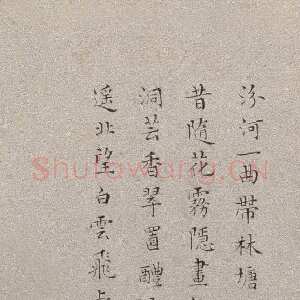 汾河一曲帶林塘
昔隨花霧隱畫
洞芸香翠置醴
遥北望白雲飛
Shufawang.CN